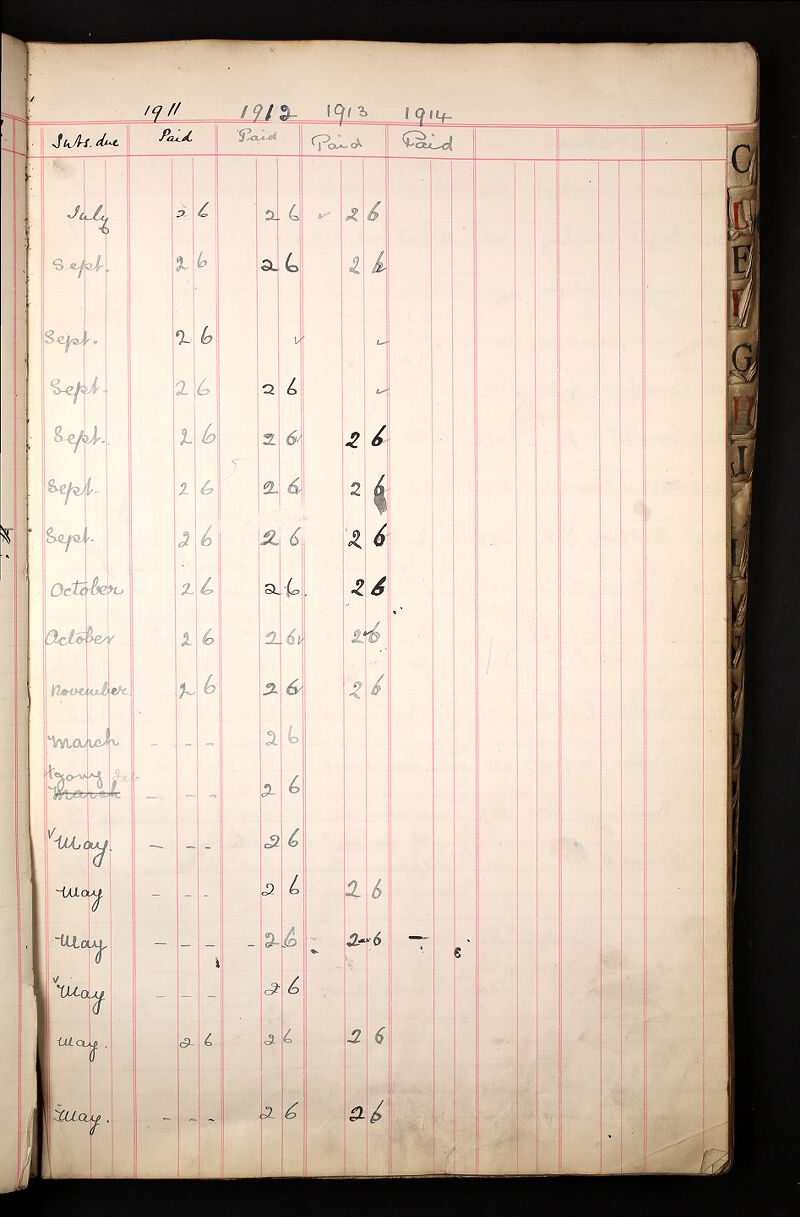 1911 1912 1913 1914
Subs. due Paid Paid Paid Paid
July 2 6 2 6 ✓ 2 6
Sept. 2 6 2 6 2 6
Sept. 2 6 ✓ ✓
Sept. 2 6 2 6 ✓
Sept. 2 6 2 6 2 6
Sept. 2 6 2 6 2 6
Sept. 2 6 2 6 2 6
October 2 6 2 6. 2 6
October 2 6 2 6 2 6
November 2 6 2 6 2 6
March - - - 2 6
March - - - 2 6
May. - - - 2 6
May - - - 2 6 2 6
May - - - - 2 6 - 2 - 6 -
May - - - 2 6
May. 2 6 2 6 2 6
May. - - - 2 6 2 6
C
E
F
G
H
I